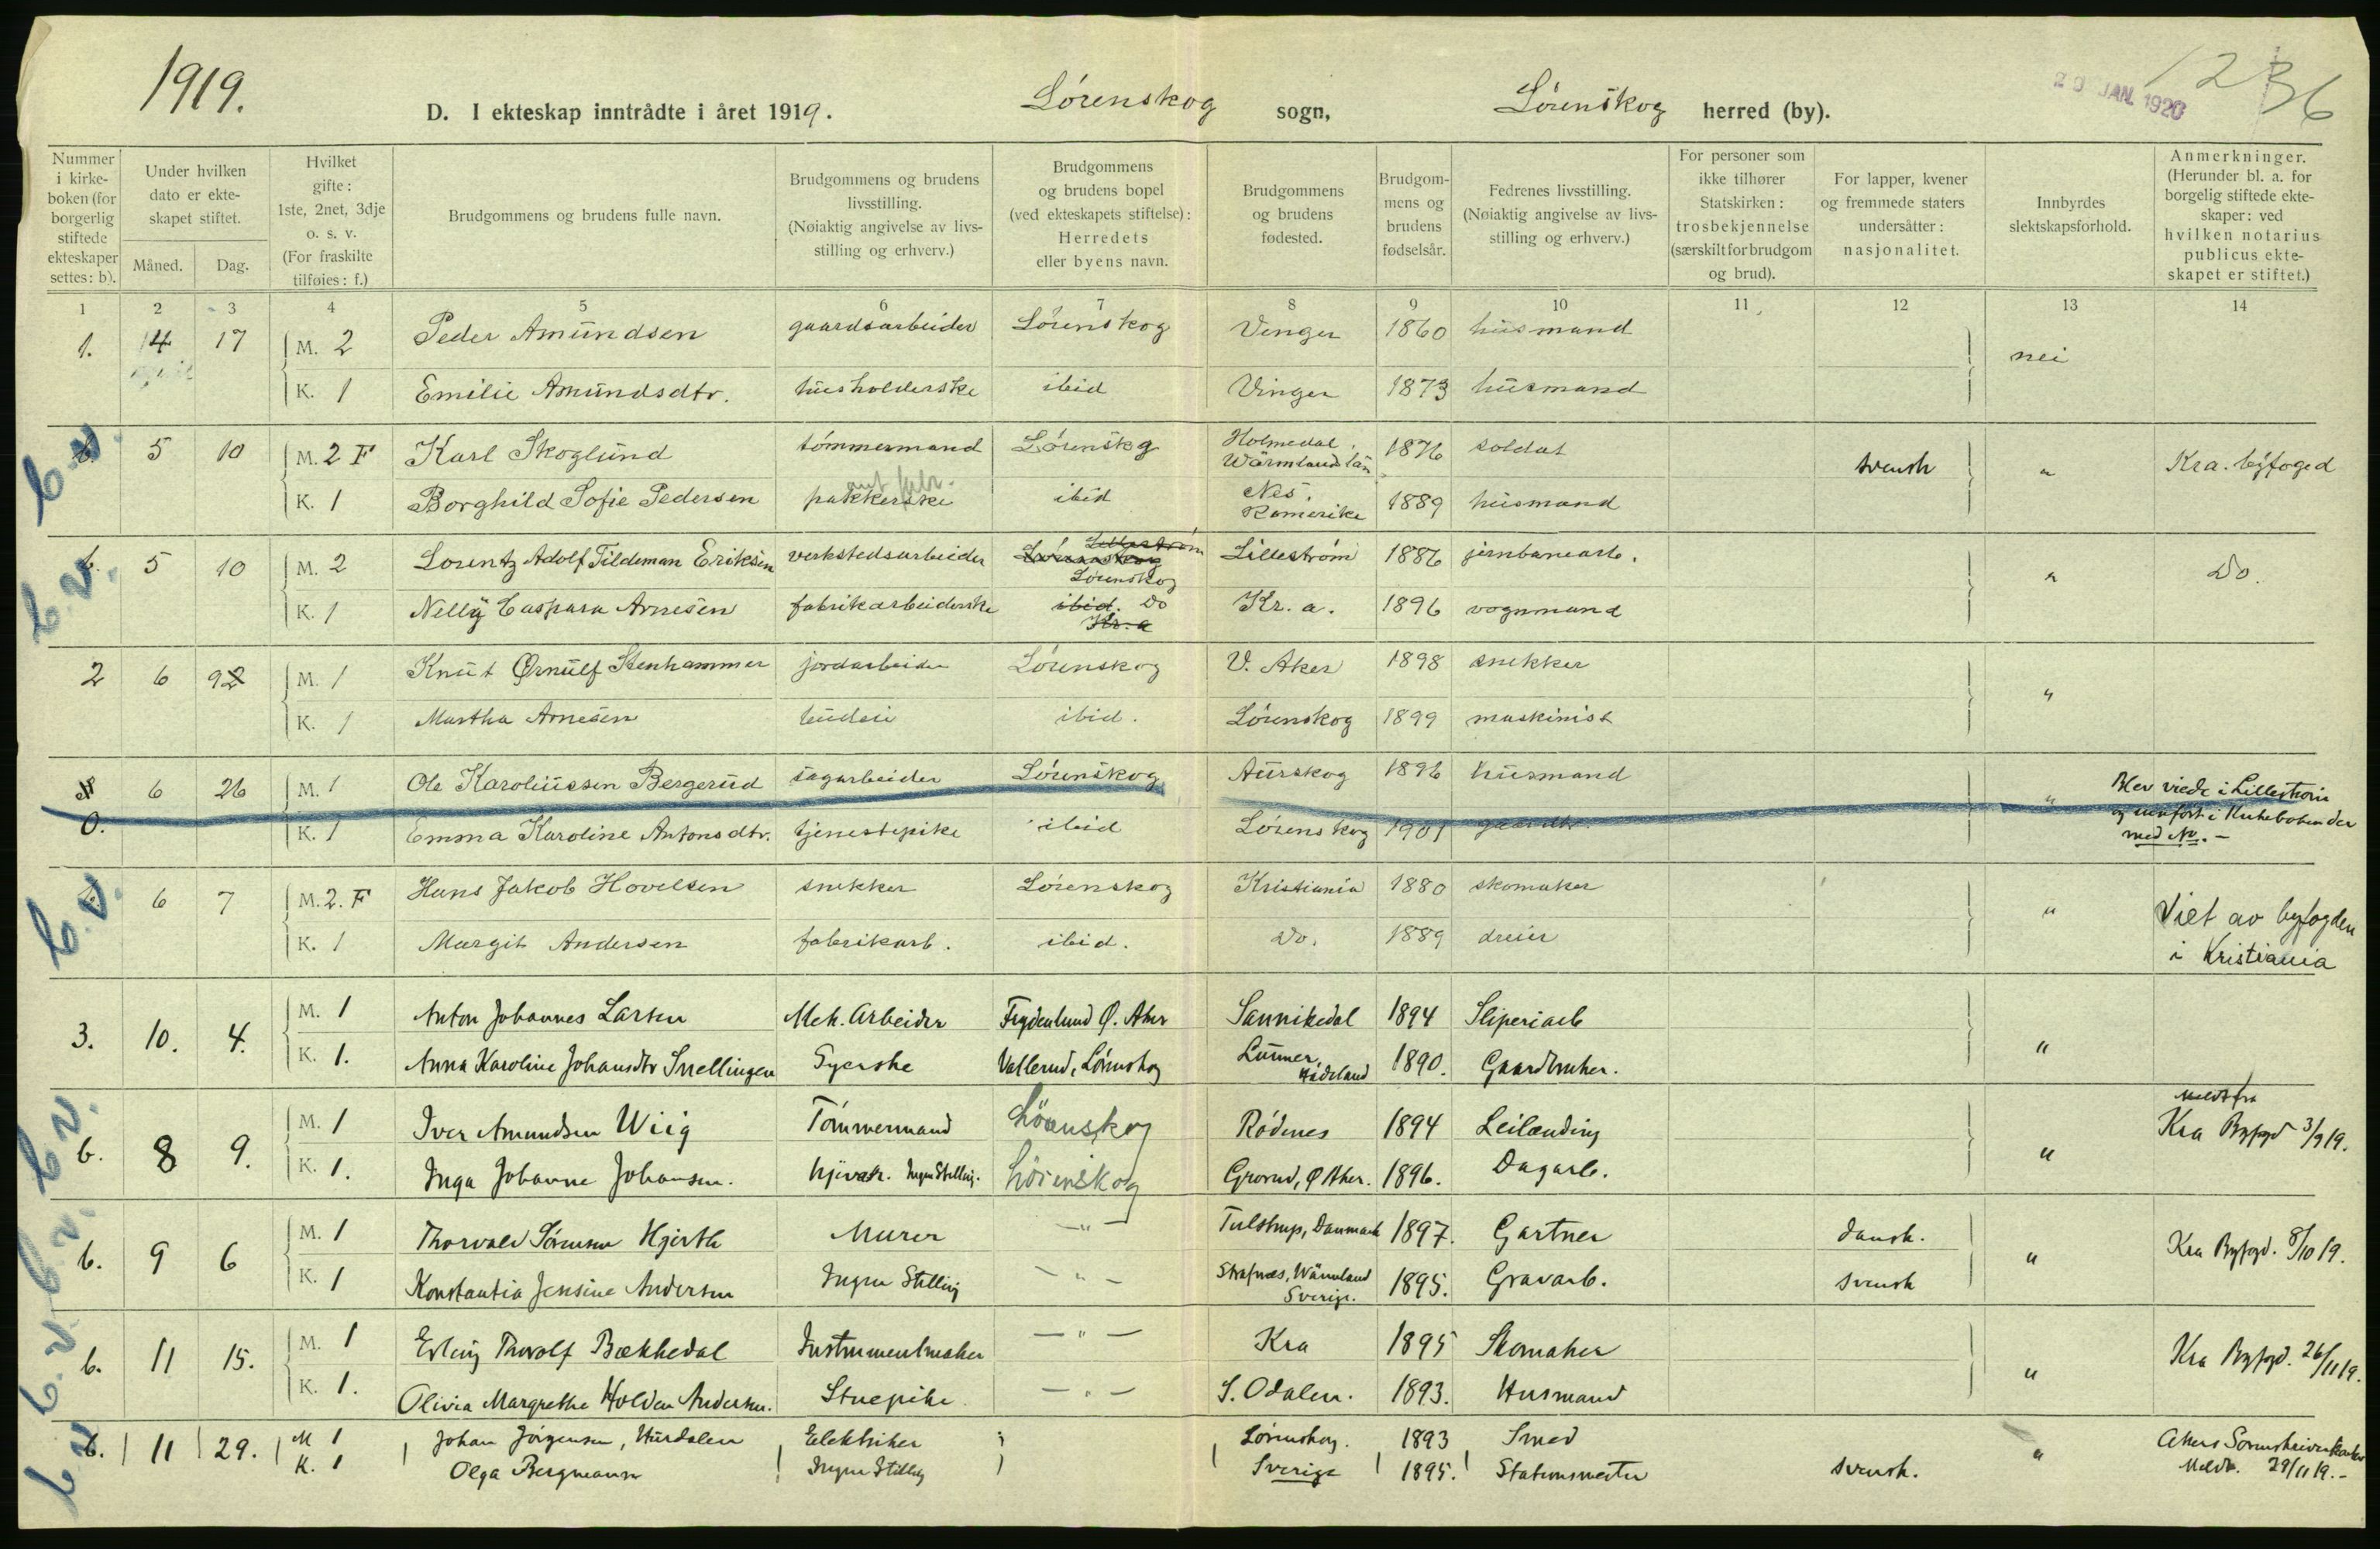 1919.
D. I ekteskap inntrådte i året 1919. Lörenskog sogn, Lörenskog herred (by).
20 JAN. 1920
Nummer i kirke-boken (for borgerlig stiftede ekteskaper settes: b).
Under hvilken dato er ekte-skapet stiftet.
Måned. Dag.
Hvilket gifte: 1ste, 2net, 3dje o. s. v. (For fraskilte tilføies: f.)
Brudgommens og brudens fulle navn.
Brudgommens og brudens livsstilling. (Nøiaktig angivelse av livs-stilling og erhverv.)
Brudgommens og brudens bopel (ved ekteskapets stiftelse): Herredets eller byens navn.
Brudgommens og brudens fødested.
Brudgom-mens og brudens fødselsår.
Fedrenes livsstilling. (Nøiaktig angivelse av livs-stilling og erhverv.)
For personer som ikke tilhører Statskirken: trosbekjennelse (særskilt for brudgom og brud).
For lapper, kvener og fremmede staters undersåtter: nasjonalitet.
Innbyrdes slektskapsforhold.
Anmerkninger. (Herunder bl. a. for borgelig stiftede ekte-skaper: ved hvilken notarius publicus ekte-skapet er stiftet.)
1 2 3 4 5 6 7 8 9 10 11 12 13 14
1. 4 17 M. 2 Peder Amundsen gaardsarbeider Lörenskog Venger 1860 husmand nei
K. 1 Emilie Amundsdtr. husholderske ibid Vinger 1873 husmand
b. v. b. 5 10 M. 2 F Karl Skoglund tömmermand Lörenskg Holmedal, Wärmlands län 1876 soldat svensk " Kra. byfoged
K. 1 Borghild Sofie Pedersen pakkerske ibid Nes, Romerike 1889 husmand
b. v. b. 5 10 M. 2 Lorentz Adolf Tildeman Eriksen verkstedsarbeider Lilleström Lörenskog Lörenskog Lilleström 1886 jernbanearb. " Do.
K. 1 Nelly Caspara Arnesen fabrikarbeiderske ibid. Do Kr. a Kr. a. 1896 vognmand
2 6 22 M. 1 Knut Ørnulf Stenhammer jordarbeider Lörenskog V. Aker 1898 snekker "
K. 1 Martha Arnesen budeie ibid. Lörenskog 1899 maskinist
0. 6 26 M. 1 Ole Karoliussen Bergerud sagarbeider Lörenskog Aurskog 1896 husmand " Blev viede i Lillestrøm
K. 1 Emma Karoline Antonsdtr. tjenestepike ibid Lörenskog 1901 gaardbr. og innført i Kirkeboken der
med No. –
b. v. 6 7 M. 2. F Hans Jakob Hovelsen snekker Lörenskog Kristiania 1880 skomaker " Viet av byfogden
K. 1 Margit Andersen fabrikarb. ibid. Do. 1889 dreier i Kristiania
3. 10. 4. M. 1 Anton Johannes Larsen Mek. Arbeider Frydenlund Ø. Aker Sannikedal 1894 Sliperiarb "
K. 1. Anna Karoline Johansdtr Snellingen Syerske Vallerud, Lörenskog Lunner, Hadeland 1890. Gaardbruker.
b. v. b. 8 9. M. 1 Iver Amundsen Wiig Tömmermand Lörenskog Rödenes 1894 Leilænding " Meldt fra Kra Byfgd 3/9 19.
K. 1. Inga Johanne Johansen. Hjivær. Ingen Stilling. Lörenskog Grorud, Ø Aker. 1896. Dagarb.
b. v. b. 9 6 M. 1 Thorvald Sörensen Hjorth Murer –"– Tulstrup, Danmark 1897. Gartner dansk. " Kra Byfgd. 8/10 19.
K. 1 Konstantia Jensine Andersen Ingen Stilling –"– Strafnæs, Wärmland Sverige. 1895. Gravarb. svensk
b. v. b. 11 15. M. 1 Erling Thorolf Bækkedal Instrumentmaker –"– Kra 1895 Skomaker " Kra Byfgd. 26/11 19.
K. 1. Olivia Margrethe Holden Andersen. Stuepike –"– S. Odalen. 1893. Husmand
b. v. b. 11 29. M 1 Johan Jörgensen, Hurdalen Elektriker Lörenskog. 1893 Smed " Akers Sorenskriverkontor
K. 1 Olga Bergmann Ingen Stilling Sverige 1895. Stationsmester svensk. Meldt. 29/11 19. –